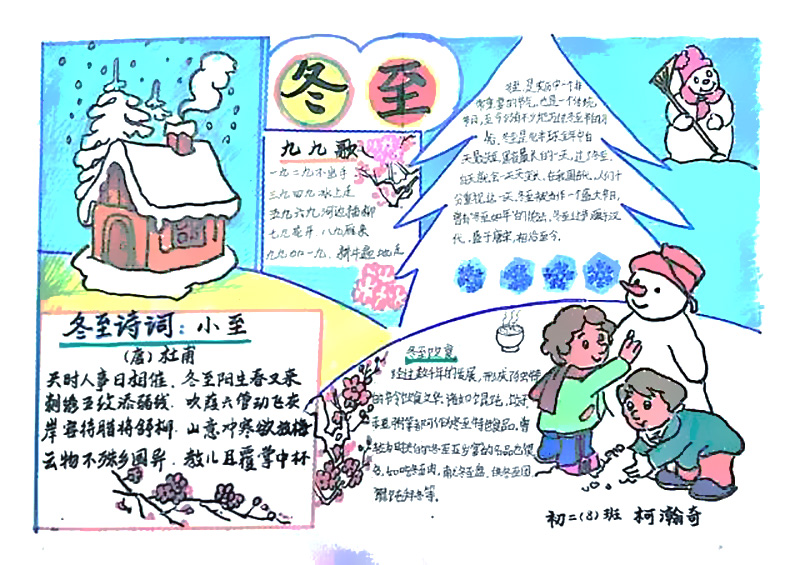 冬至
九九歌
一九二九不出手
三九四九冰上走
五九六九河边插柳
七九花开 八九雁来
九九加一九、耕牛遍地走
冬至，是农历中一个非
常重要的节气，也是一个传统
节日，至今仍有不少地方过冬至节的习
俗。冬至是北半球全年中白
天最短、黑夜最长的一天，过了冬至，
白天就会一天天变长，在我国古代，人们十
分重视这一天，冬至被当作一个盛大节日，
曾有“冬至如年”的说法，冬至过节源于汉
代，盛于唐宋，相沿至今。
冬至诗词：小至
（唐）杜甫
天时人事日相催，冬至阳生春又来
刺绣五纹添弱线，吹葭六管动飞灰
岸容待腊将舒柳，山意冲寒欲放梅
云物不殊乡国异，教儿且覆掌中杯
冬至饮食
经过数千年的发展，形成了独特
的节令饮食文化。诸如
等都可作为冬至特色食品。
初二（8）班 柯瀚奇